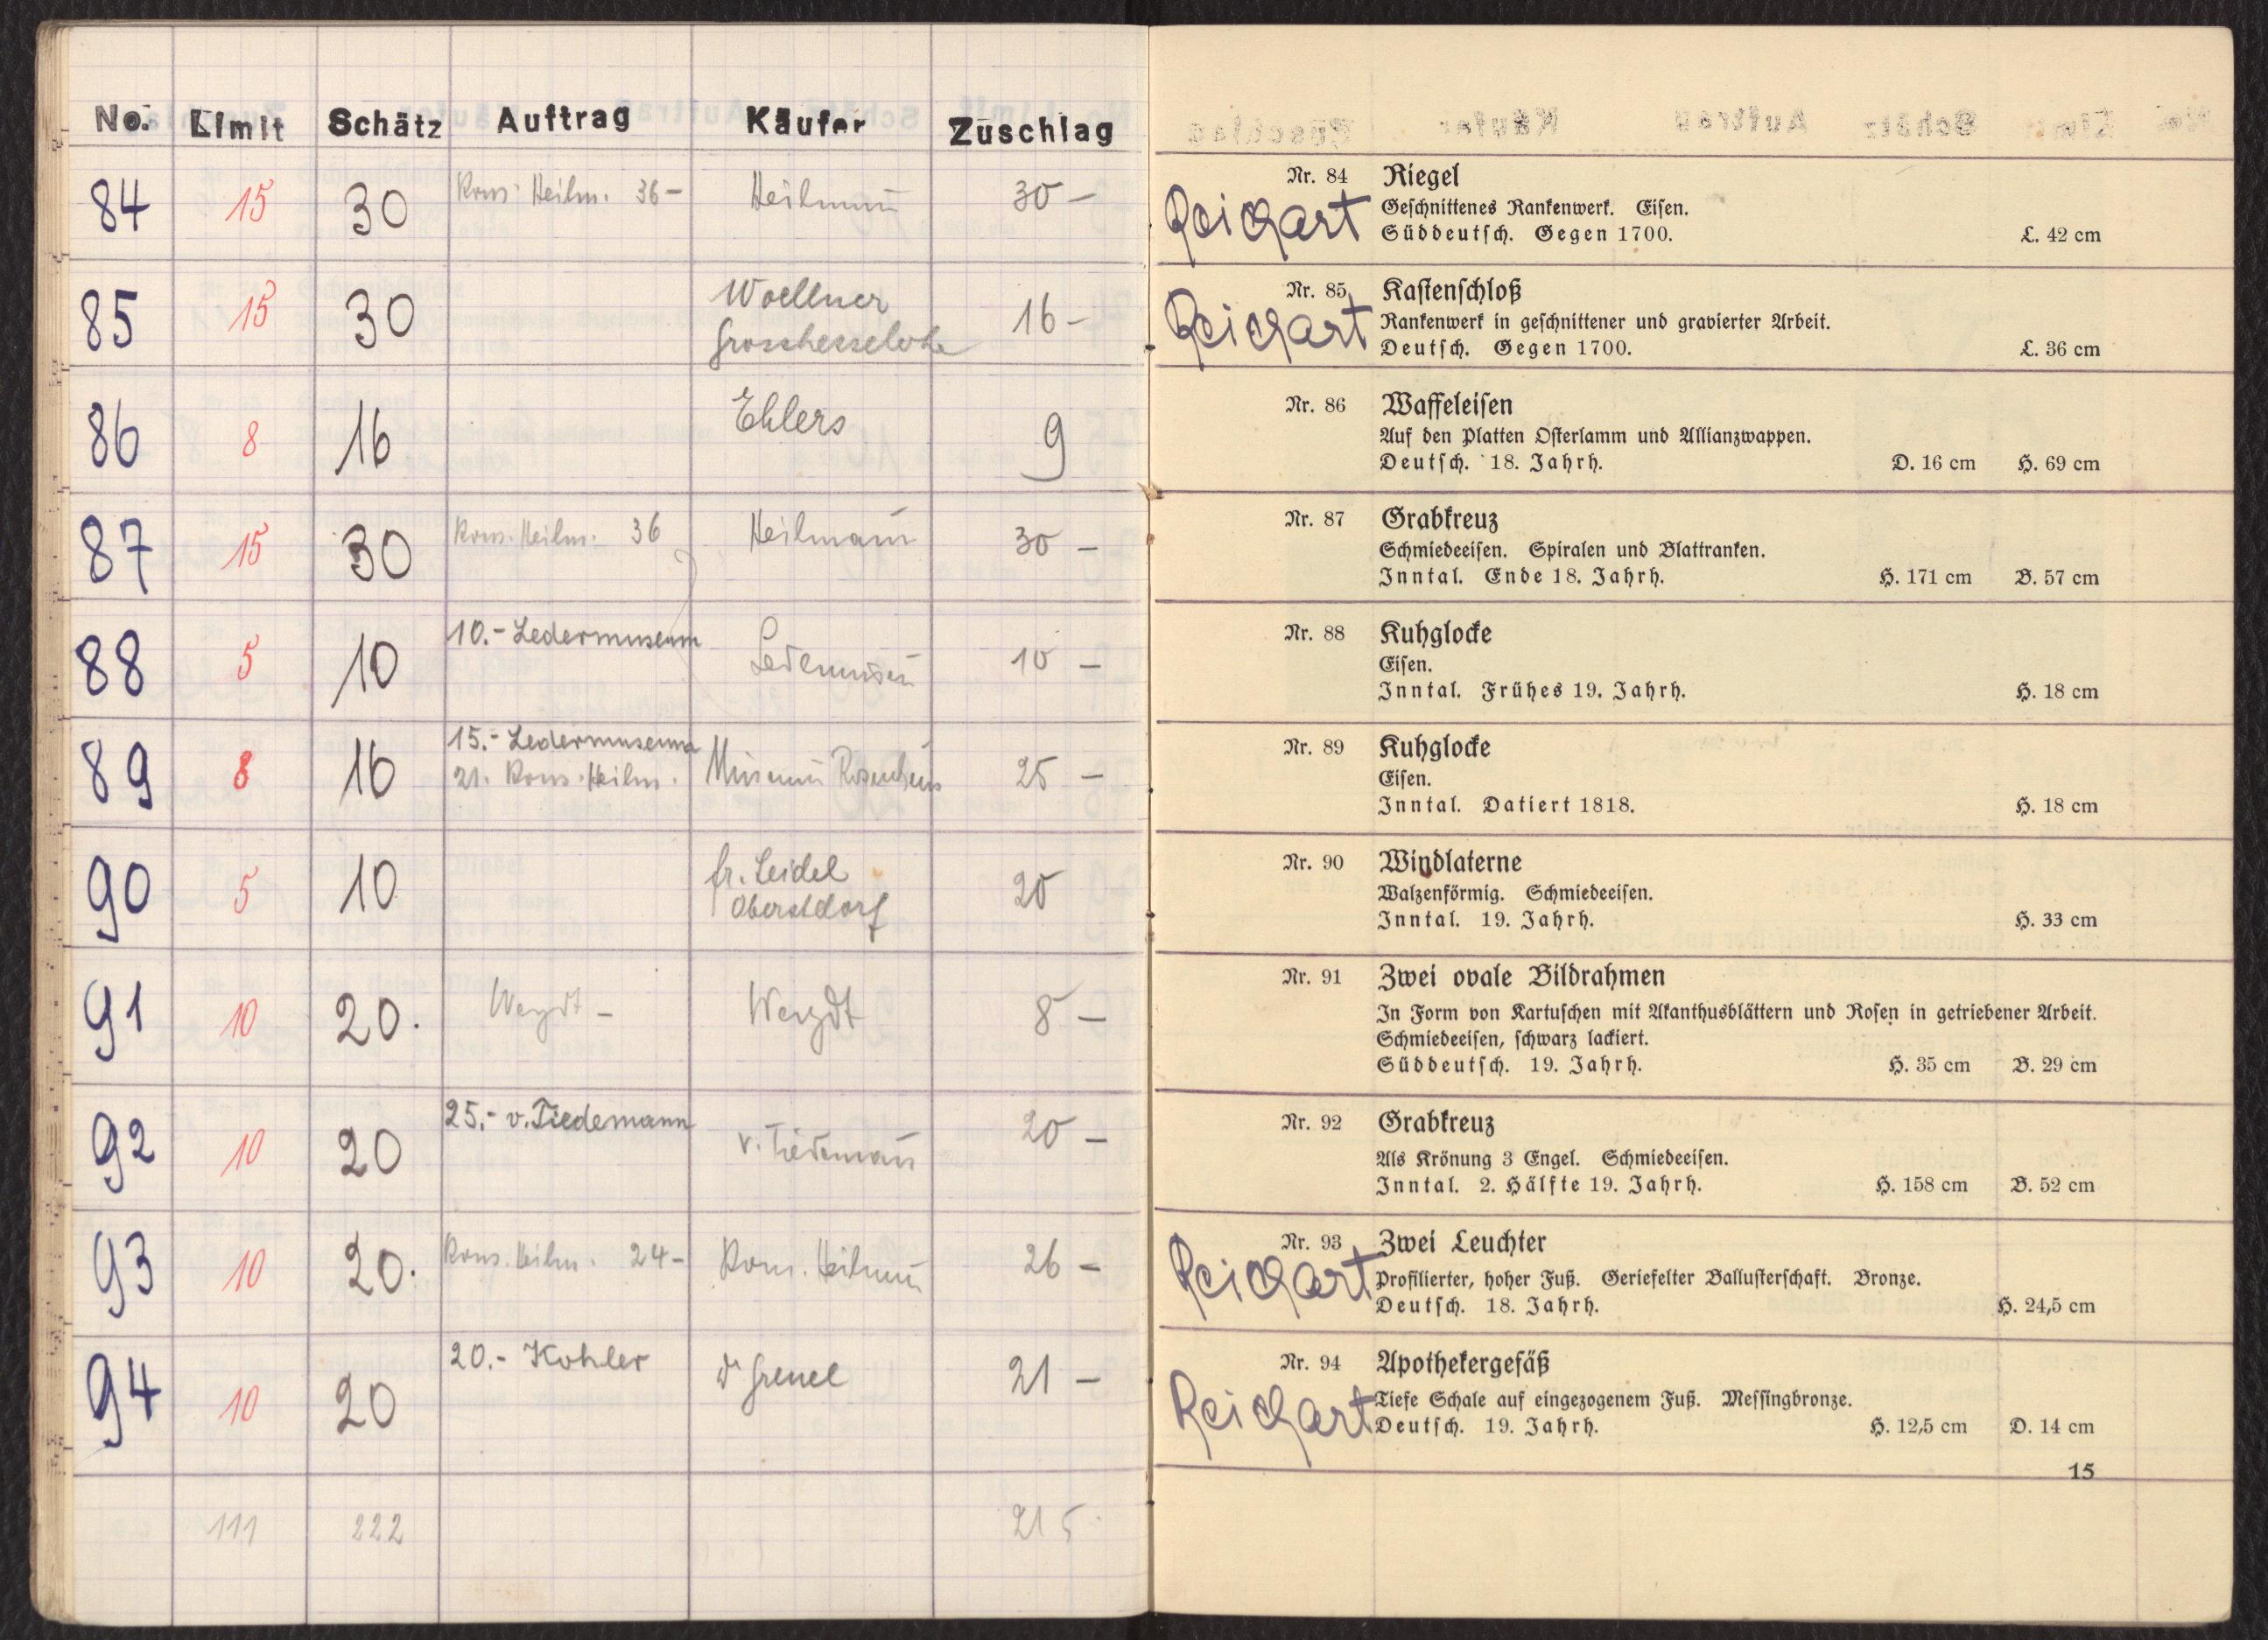 No. Limit Schätz Auftrag Käufer Zuschlag
84 15 30 Kons. Heilm. 36- Heilmann 30 -
85 15 30 Woellner 16 -
Grosshesselohe
86 8 16 Ehlers 9
87 15 30 Kons. Heilm. 36 Heilmann 30 -
88 5 10 10.- Ledermuseum 10 -
89 8 16 15.- Ledermuseum
21. Kons. Heilm. Museum Rosenheim 25 -
90 5 10 fr. Seidel 20
Oberstdorf
91 10 20. Weydt - Weydt 8 -
92 10 20 25.- v. Tiedemann v. Tiedemann 20 -
93 10 20. Kons. Heilm. 24- Kons. Heilmann 26 -
94 10 20 20.- Kohler 21 -
111 222 215
Nr. 84 Riegel
Reichart Geschnittenes Rankenwerk. Eisen.
Süddeutsch. Gegen 1700. L. 42 cm
Nr. 85 Kastenschloß
Reichart Rankenwerk in geschnittener und gravierter Arbeit.
Deutsch. Gegen 1700. L. 36 cm
Nr. 86 Waffeleisen
Auf den Platten Osterlamm und Allianzwappen.
Deutsch. 18. Jahrh. D. 16 cm H. 69 cm
Nr. 87 Grabkreuz
Schmiedeeisen. Spiralen und Blattranken.
Inntal. Ende 18. Jahrh. H. 171 cm B. 57 cm
Nr. 88 Kuhglocke
Eisen.
Inntal. Frühes 19. Jahrh. H. 18 cm
Nr. 89 Kuhglocke
Eisen.
Inntal. Datiert 1818. H. 18 cm
Nr. 90 Windlaterne
Walzenförmig. Schmiedeeisen.
Inntal. 19. Jahrh. H. 33 cm
Nr. 91 Zwei ovale Bildrahmen
In Form von Kartuschen mit Akanthusblättern und Rosen in getriebener Arbeit.
Schmiedeeisen, schwarz lackiert.
Süddeutsch. 19. Jahrh. H. 35 cm B. 29 cm
Nr. 92 Grabkreuz
Als Krönung 3 Engel. Schmiedeeisen.
Inntal. 2. Hälfte 19. Jahrh. H. 158 cm B. 52 cm
Nr. 93 Zwei Leuchter
Reichart Profilierter, hoher Fuß. Geriefelter Ballusterschaft. Bronze.
Deutsch. 18. Jahrh. H. 24,5 cm
Nr. 94 Apothekergefäß
Reichart Tiefe Schale auf eingezogenem Fuß. Messingbronze.
Deutsch. 19. Jahrh. H. 12,5 cm D. 14 cm
15